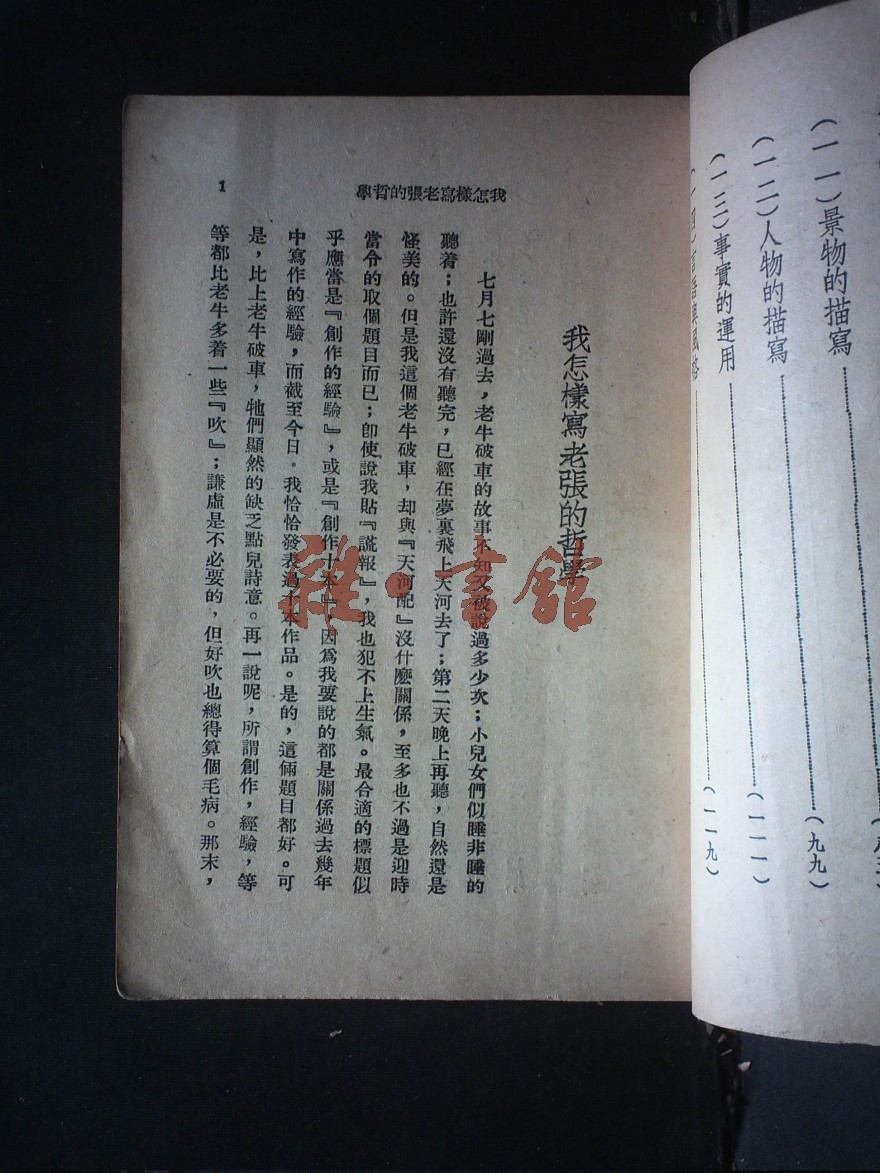 （一一）景物的描寫……（九九）
（一二）人物的描寫……（一一一）
（一三）事實的運用……（一一九）
我怎樣寫老張的哲學
1
我怎樣寫老張的哲學
七月七剛過去，老牛破車的故事不知又被說過多少次；小兒女們似睡非睡的
聽着；也許還沒有聽完，已經在夢裏飛上天河去了；第二天晚上再聽，自然還是
怪美的。但是我這個老牛破車，却與『天河配』沒什麽關係，至多也不過是迎時
當令的取個題目而已；卽使說我貼『謊報』，我也犯不上生氣。最合適的標題似
乎應當是『創作的經驗』，或是『創作十本』，因爲我要說的都是關係過去幾年
中寫作的經驗，而截至今日，我恰恰發表過十本作品。是的，這倆題目都好。可
是，比上老牛破車，牠們顯然的缺乏點兒詩意。再一說呢，所謂創作，經驗，等
等都比老牛多着一些『吹』；謙虛是不必要的，但好吹也總得算個毛病。那末，
雜·書館